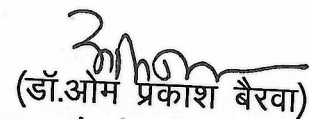 (डॉ.ओम प्रकाश बैरवा)